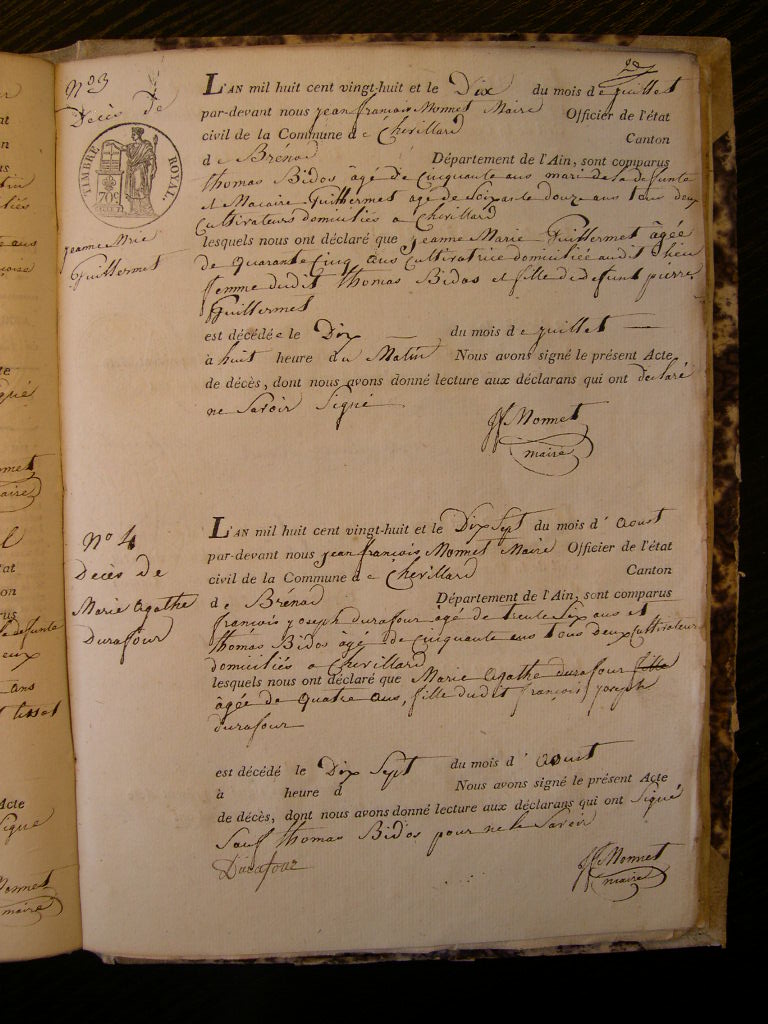 N° 3
Decès de
TIMBRE ROYAL.
70c
jeanne Marie
Guillermet
L'AN mil huit cent vingt-huit et le Dix du mois de juillet
par-devant nous jean françois Monnet Maire Officier de l'état
civil de la Commune de Chevillard Canton
de Brénod Département de l'Ain, sont comparus
thomas Bidos âgé de Cinquante ans mari de la defunte
et Macaire Guillermet age de Soixante douze ans tous deux
Cultivateurs domiciliés a Chevillard
lesquels nous ont déclaré que jeanne Marie Guillermet âgée
de quarante Cinq ans Cultivatrice domiciliée audit lieu
femme dudit thomas Bidos et fille de defunt pierre
Guillermet
est décédée le Dix du mois de juillet
à huit heure du Matin Nous avons signé le présent Acte
de décès, dont nous avons donné lecture aux déclarans qui ont declaré
ne Savoir Signé
Monnet
maire
N° 4
Decès de
Marie Agathe
Durafour
L'AN mil huit cent vingt-huit et le Dix Sept du mois d' Aoust
par-devant nous jean françois Monnet Maire Officier de l'état
civil de la Commune de Chevillard Canton
de Brénod Département de l'Ain, sont comparus
françois joseph durafour âgé de trente Six ans et
thomas Bidos âgé de Cinquante ans tous deux Cultivateurs
domiciliés a Chevillard
lesquels nous ont déclaré que Marie Agathe durafour fille
âgée de quatre ans, fille dudit françois joseph
durafour
est décédé le Dix Sept du mois d' Aoust
à heure d Nous avons signé le présent Acte
de décès, dont nous avons donné lecture aux déclarans qui ont Signé
Sauf thomas Bidos pour ne le Savoir
Durafour
Monnet
maire